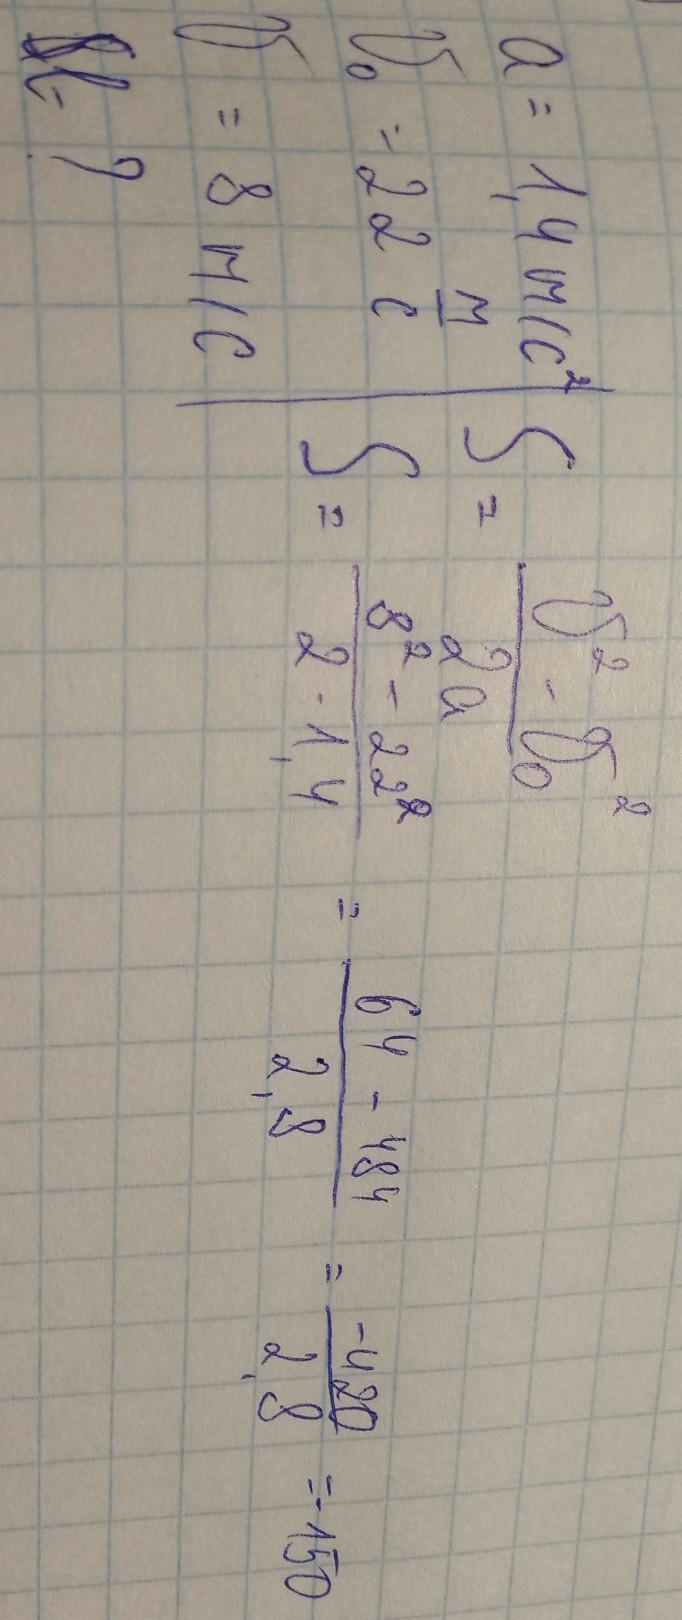 a = 1,4 м/с²
V₀ = 22 м/с
V = 8 м/с
l - ?
S = (V² - V₀²)/(2a)
S = (8² - 22²)/(2 · 1,4) = (64 - 484)/(2,8) = (-420)/(2,8) = -150